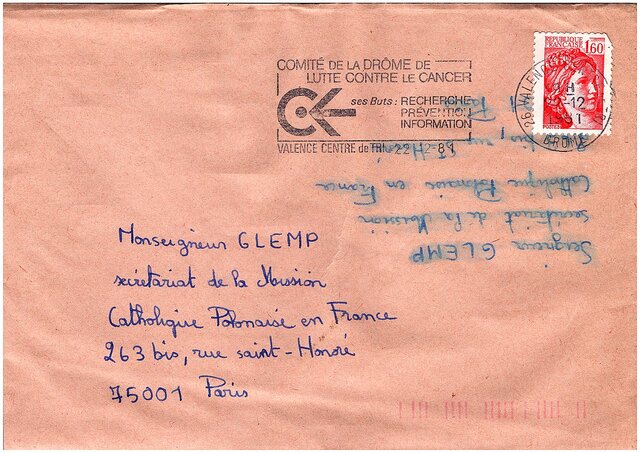 COMITÉ DE LA DRÔME DE
LUTTE CONTRE LE CANCER
ses Buts : RECHERCHE
PRÉVENTION
INFORMATION
VALENCE CENTRE de TRI 22-12-81
REPUBLIQUE
FRANÇAISE
1,60
26 VALENCE
DROME
Monseigneur GLEMP
secrétariat de la Mission
Catholique Polonaise en France
263 bis, rue saint-Honoré
75001 Paris
Seigneur GLEMP
secrétariat de la Mission
Catholique Polonaise en France
bis, rue St-Honoré
Paris